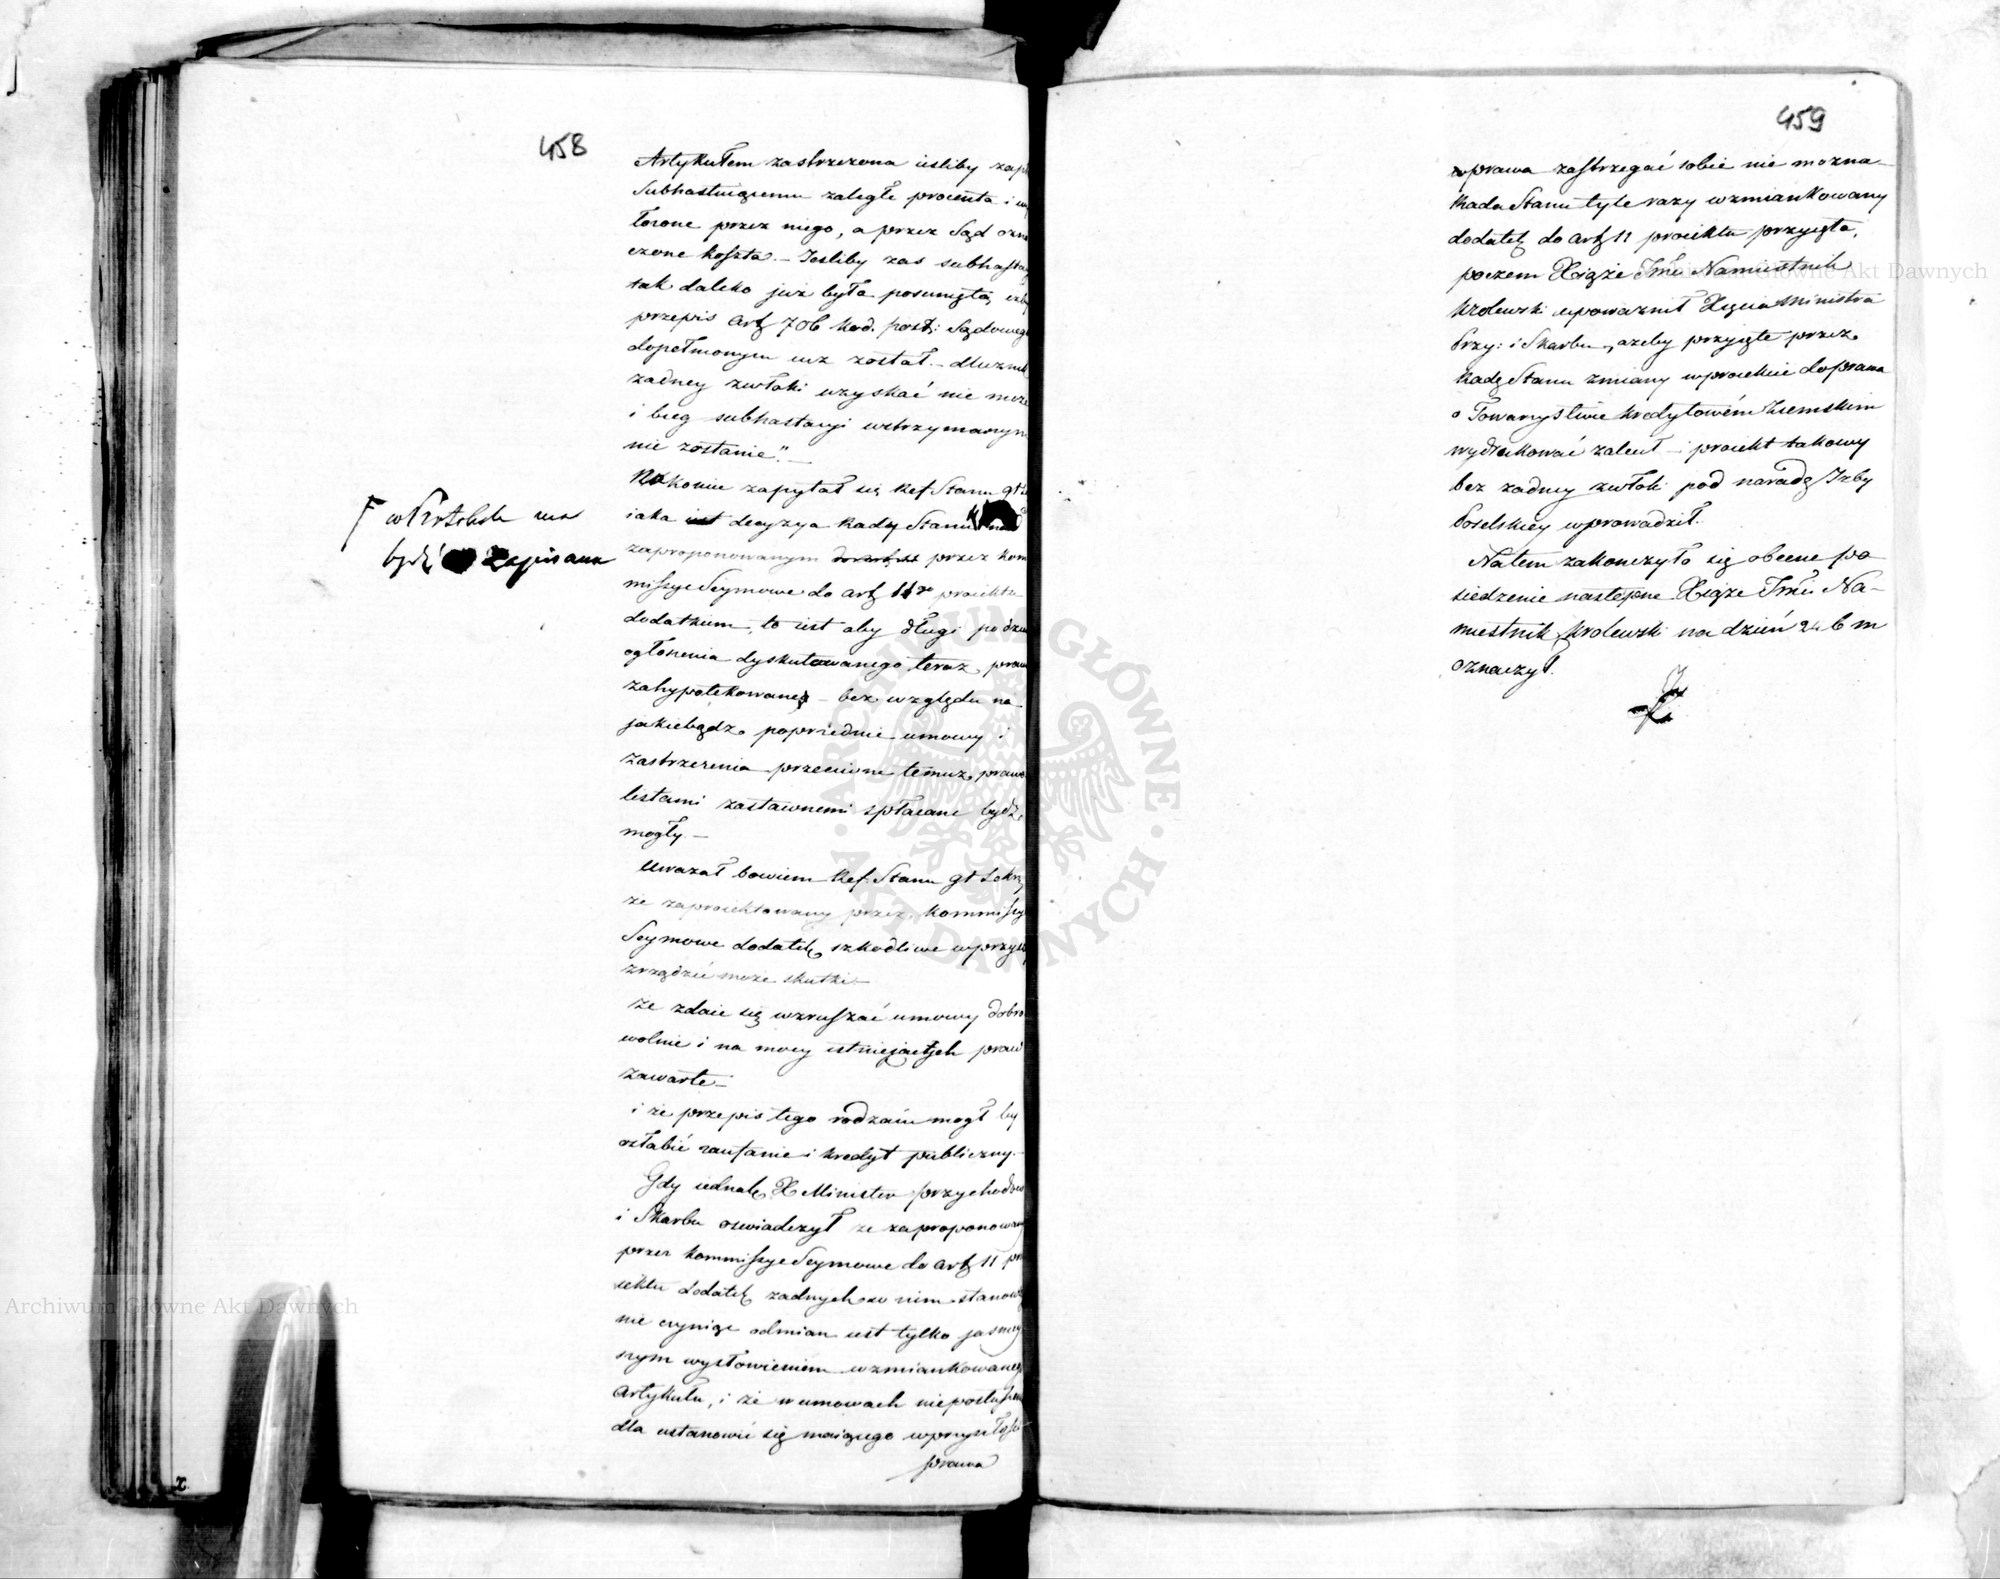 458
Artykułem zastrzeżona iesliby zap
Subhastuiącemu zaległe procenta i wy
łożone przez niego, a przez Sąd ozna
czone koszta. – Jesliby zas subhasta
tak daleko iuż była posunięta, iżby
przepis Art 706 Kod. post: Sądowego
dopełnionym iuż został – dłużnik
żadney zwłoki uzyskać nie może
i bieg subhastacyi wstrzymanym
nie zostanie". –
Nakoniec zapytał się Ref Stanu
iaka iest decyzya Rady Stanu nad
zaproponowanym przez Kom
missye Seymowe do Art 11go proiektu
dodatkiem, to iest aby długi po dzień
ogłoszenia dyskutowanego teraz prawa
zahypotekowane – bez względu na
jakiebądź poprzednie umowy i
zastrzeżenia przeciwne temuż prawu
listami zastawnemi spłacane bydź
mogły. –
Uważał bowiem Ref. Stanu
że zaproiektowany przez Kommissye
Seymowe dodatek szkodliwe w przyszł
zrządzić może skutki –
że zdaie się wzruszać umowy dobro
wolnie i na mocy istniejących praw
zawarte –
i że przepis tego rodzaiu mogł by
osłabić zaufanie i kredyt publiczny. –
Gdy iednak X Minister przychodow
i Skarbu oswiadczył ze zaproponowany
przez Kommissye Seymowe do Art 11 pro
iektu dodatek żadnych w nim stanow
nie czyniąc odmian iest tylko jasniey
szym wysłowieniem wzmiankowanego
Artykułu, i że w umowach
dla ustanowić się maiącego w przyszłości
prawa
F w Protokule ma
bydź zapisana
459
prawa zastrzegać sobie nie można –
Rada Stanu tyle razy wzmiankowany
dodatek do Art 11 proiektu przyięła,
poczem Xiąże Jmć Namiestnik
Krolewski upoważnił Xięcia Ministra
Przy: i Skarbu, ażeby przyięte przez
Radę Stanu zmiany w proiekcie do prawa
o Towarzystwie Kredytowém Ziemskim
wydrukować zalecił – i proiekt takowy
bez żadney zwłoki pod naradę Izby
Poselskiey wprowadził.
Na tem zakonczyło się obecne po
siedzenie następne Xiąże Jmć Na-
miestnik Krolewski na dzień 24 b m
oznaczył.
Archiwum Główne Akt Dawnych
Główne Akt Dawnych
ARCHIWUM GŁÓWNE AKT DAWNYCH